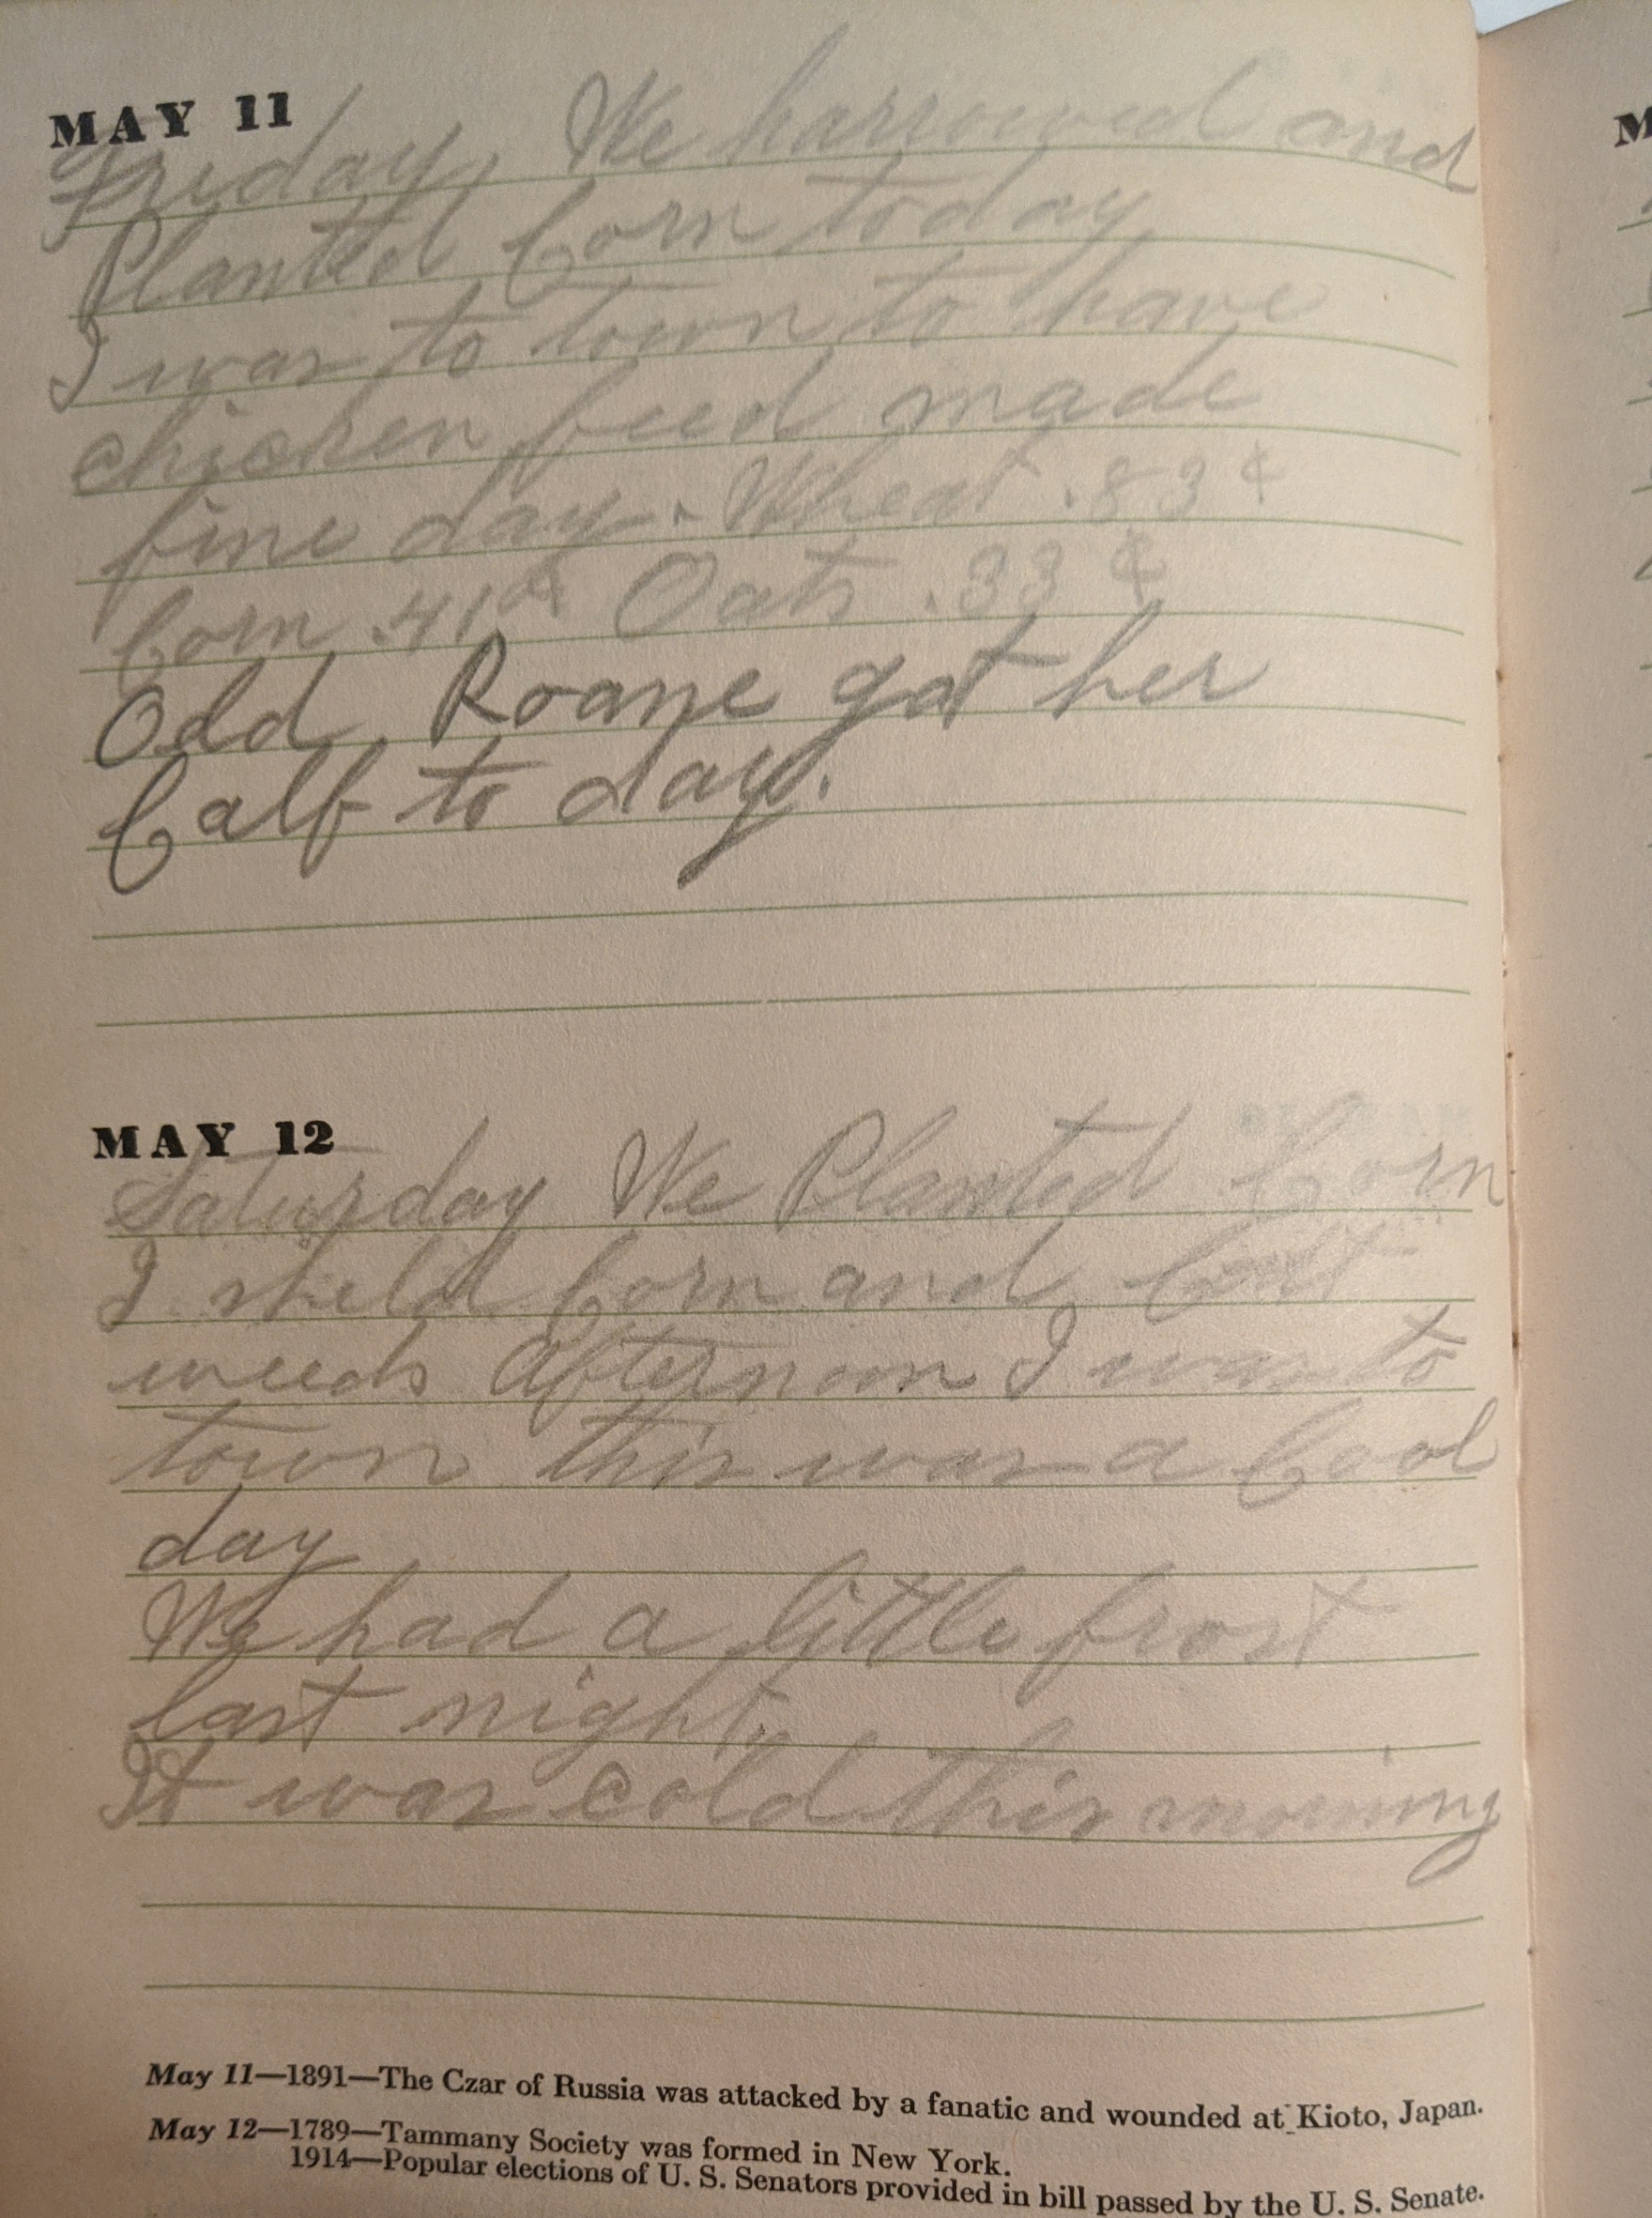 MAY 11
Friday, We harrowed and
Planted Corn today
I was to town to have
chicken feed made
fine day. Wheat .83¢
Corn .41¢ Oats .33¢
Old Roane got her
Calf to day.
MAY 12
Saturday We Planted Corn
I sheld Corn and Cut
weeds Afternoon I was to
town this was a Cool
day
We had a little frost
last night.
It was cold this morning
May 11—1891—The Czar of Russia was attacked by a fanatic and wounded at Kioto, Japan.
May 12—1789—Tammany Society was formed in New York.
1914—Popular elections of U. S. Senators provided in bill passed by the U. S. Senate.